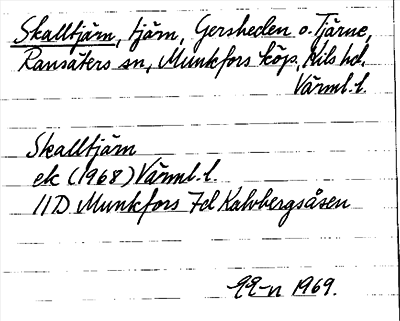 Skalltjärn, tjärn, Gersheden o. Tjärne,
Ransäters sn, Munkfors köp, Kils hd.
Värml. l.
Skalltjärn
ek (1968) Värml. l.
11D Munkfors 7d Kalvbergsåsen
1969.